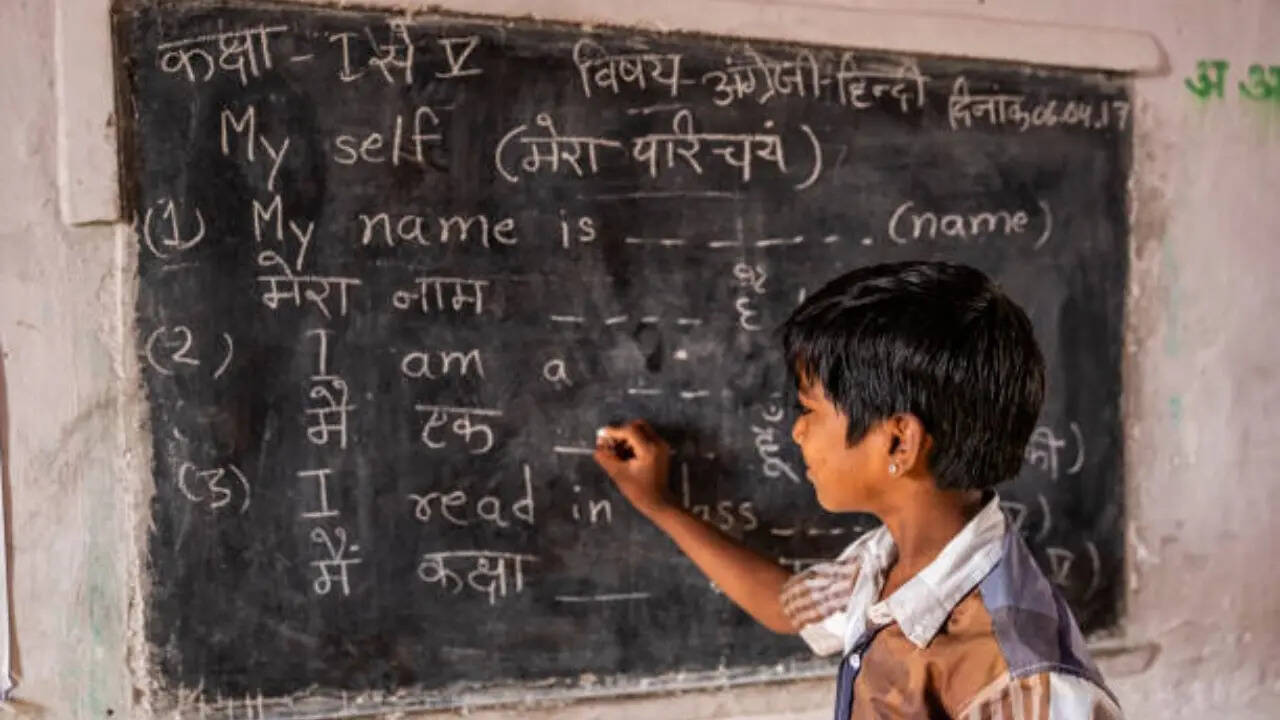 कक्षा - I से V विषय - अंग्रेजी - हिन्दी दिनांक 06.04.17
अ
My self (मेरा परिचयं)
(1) My name is _ _ _ _ _ . (name)
मेरा नाम _ _ _ _ है
(2) I am a _ _
मैं एक _
(3) I read in class _ _ _ _
मैं कक्षा _